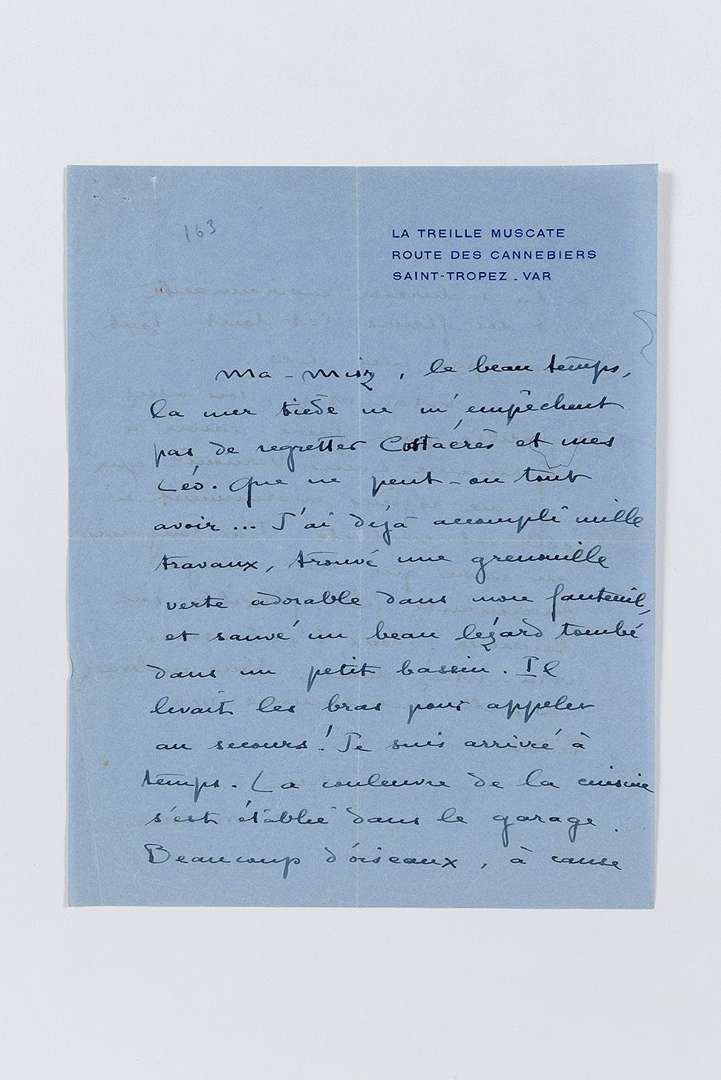 163
LA TREILLE MUSCATE
ROUTE DES CANNEBIERS
SAINT-TROPEZ _ VAR
Ma-Misz, le beau temps,
la mer tiède ne m'empêchent
pas de regretter Costaérès et mes
Léo. Que ne peut-on tout
avoir... J'ai déjà accompli mille
travaux, trouvé une grenouille
verte adorable dans mon fauteuil,
et sauvé un beau lézard tombé
dans un petit bassin. Il
levait les bras pour appeler
au secours! Je suis arrivé à
temps. La couleuvre de la cuisine
s'est établie dans le garage.
Beaucoup d'oiseaux, à cause